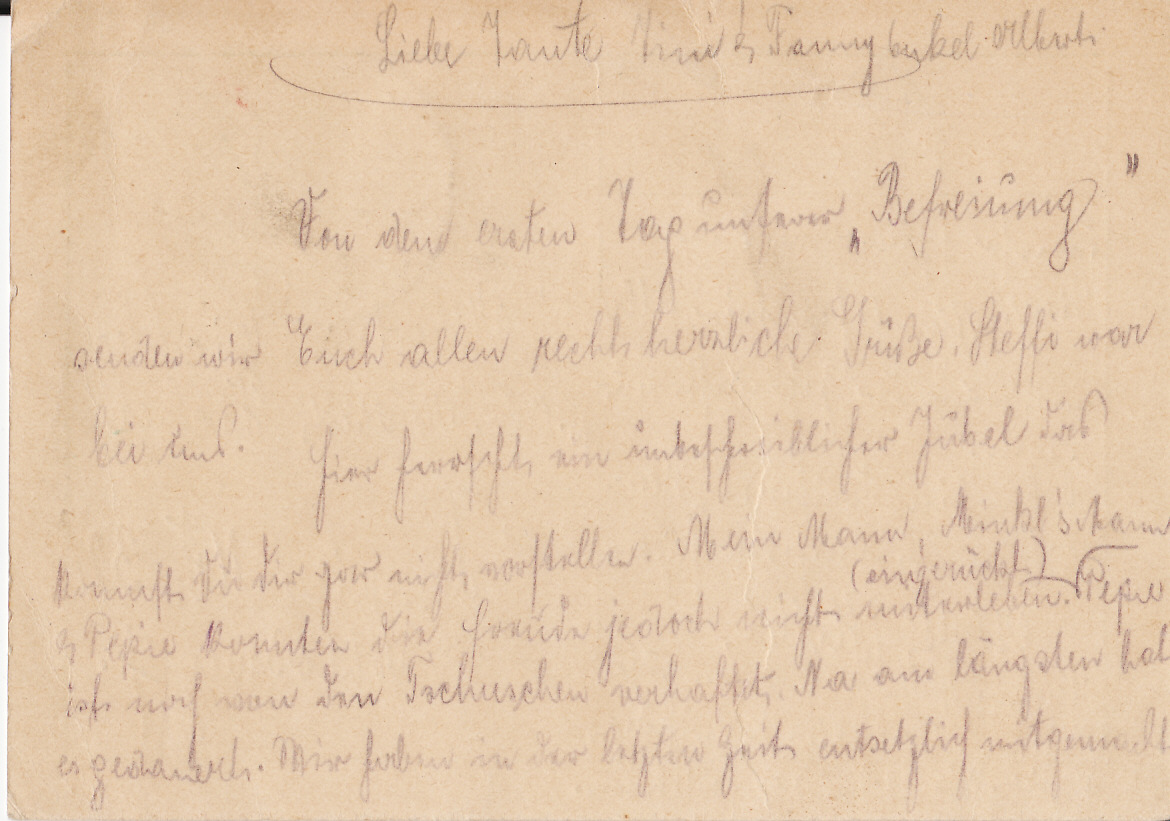 Liebe Tante Mini & Fanny Onkel Albert.
Von dem ersten Tag unserer „Befreiung"
senden wir Euch allen recht herzliche Grüße. Steffi war
bei uns. Hier herrscht ein unbeschreiblicher Jubel das
kannst Du Dir gar nicht vorstellen. Mein Mann, Minkl's Mann
(eingerückt)
& Pepie konnten die Freude jedoch nicht miterleben. Pepie
ist noch von den Tschuschen verhaftet. Na am längsten hat
es gedauert. Wir haben in der letzten Zeit entsetzlich mitgemacht